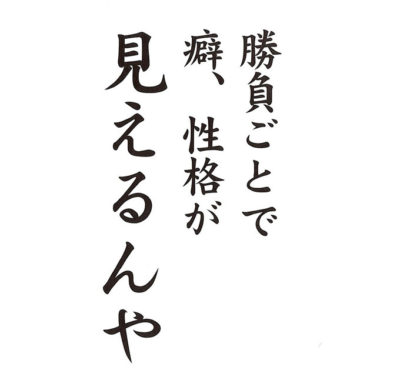 勝負ごとで
癖、性格が
見えるんや